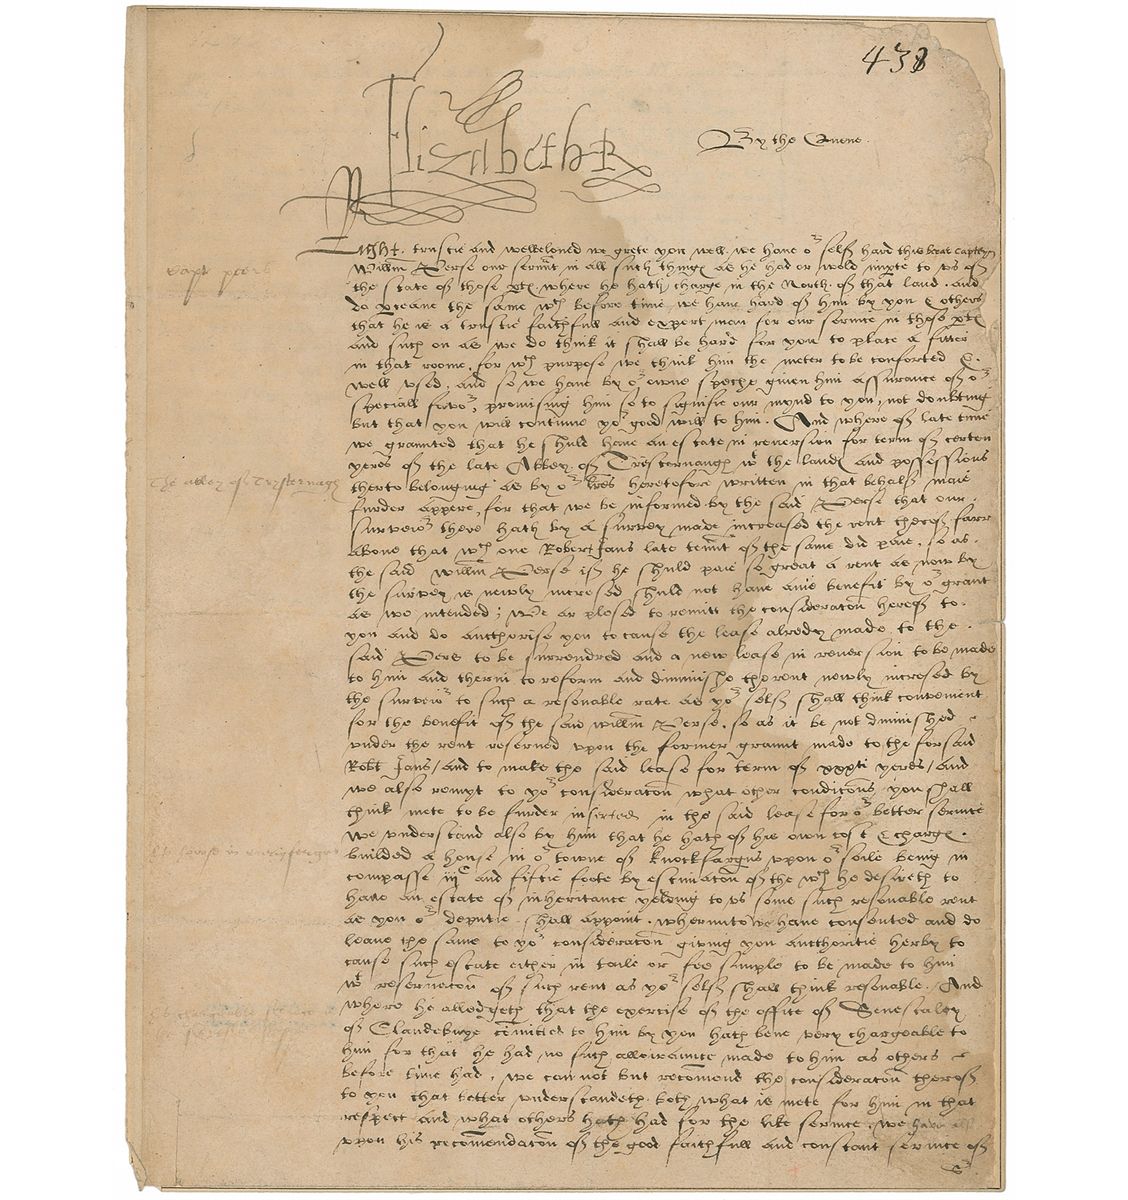 438
Elizabeth R
By the Quene.
Capt peers
Right trustie and welbeloved we grete you well. we have or self hard this berar Capteyn
Willm Perse our servunt in all such things as he had or wold impte to us of
the state of those ptes where he hath charge in the North of that land. and
do pceave the same wch before time we have hard of him by you & others
that he is a trustie faithfull and expert man for our service in those ptes
and such on as we do think it shall be hard for you to place a fitter
in that roome. for wch purpose we think him the meter to be conforted &
well used. and so we have by or owne speche given him assurance of or
speciall favor, promising him so to signifie our mynd to you, not doubting
but that you will contynue yor good will to him. And where of late time
we graunted that he shuld have an estate in reversion for term of certen
yeres of the late Abbey of Tristernaugh wt the lands and possessions
The abbey of Trysternagh
therto belonging as by or lres heretofore written in that behalf maie
furder appere, for that we be informed by the said Perse that our
surveior there hath by a survey made increased the rent therof farr
above that wch one Robert Jans late tennt of the same did paie, so as
the said Willm Perse if he shuld paie so great a rent as now by
the survey is newly incresed shuld not have anie benefit by or grant
as we intended; We ar plesed to remitt the consideracon herof to
you and do aucthorise you to cause the lease alredy made to the
said Pers to be surrendred and a new lease in reversion to be made
to him and therin to reform and diminishe the rent newly incresed by
the surveior to such a resonable rate as yor self shall think convenient
for the benefit of the said Willm Perse, so as it be not diminished
under the rent reserved upon the former graunt made to the forsaid
Robt Jans / and to make the said lease for term of xxxti yeres / and
we also remyt to yor consideracon what other condicons you shall
think mete to be furder inserted in the said lease for or better service
We understand also by him that he hath of his own cost & charge
builded a house in or towne of Knockfargus upon or soile being in
compasse and fiftie foote by estimacon of the wch he desireth to
have an estate of inheritance yelding to us some such resonable rent
as you or deputie shall appoint. wherunto we have consented and do
leave the same to yor consideracon giving you aucthoritie herby to
cause such estate either in taile or fee simple to be made to him
wt reservacon of such rent as yor self shall think resonable. And
where he alledgeth that the exercise of the office of Senescalcy
of Clandeboye comitted to him by you hath bene very chargeable to
him for that he had no such allowaunce made to him as others
before time had, we can not but recomend the consideracon therof
to you that better understandeth both what is mete for him in that
respect and what others hath had for the like service. we have also
upon his recomendacon of the good faithfull and constant service of